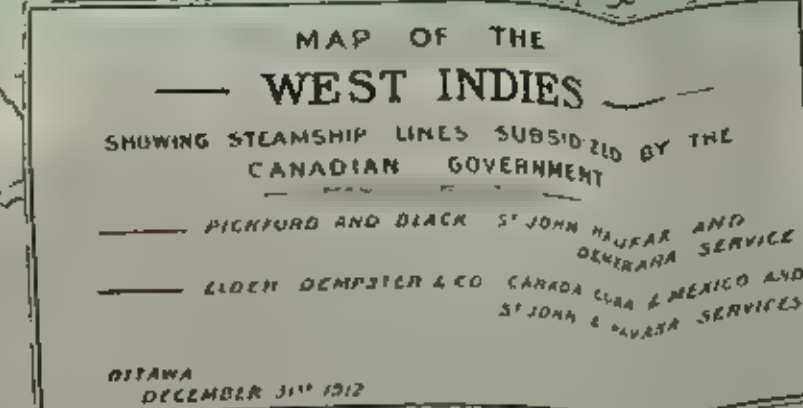 MAP OF THE
WEST INDIES
SHOWING STEAMSHIP LINES SUBSIDIZED BY THE
CANADIAN GOVERNMENT
PICKFORD AND BLACK ST JOHN HALIFAX AND
DEMERARA SERVICE
ELDER DEMPSTER & CO CANADA CUBA & MEXICO AND
ST JOHN & HAVANA SERVICES
OTTAWA
DECEMBER 31ST 1912